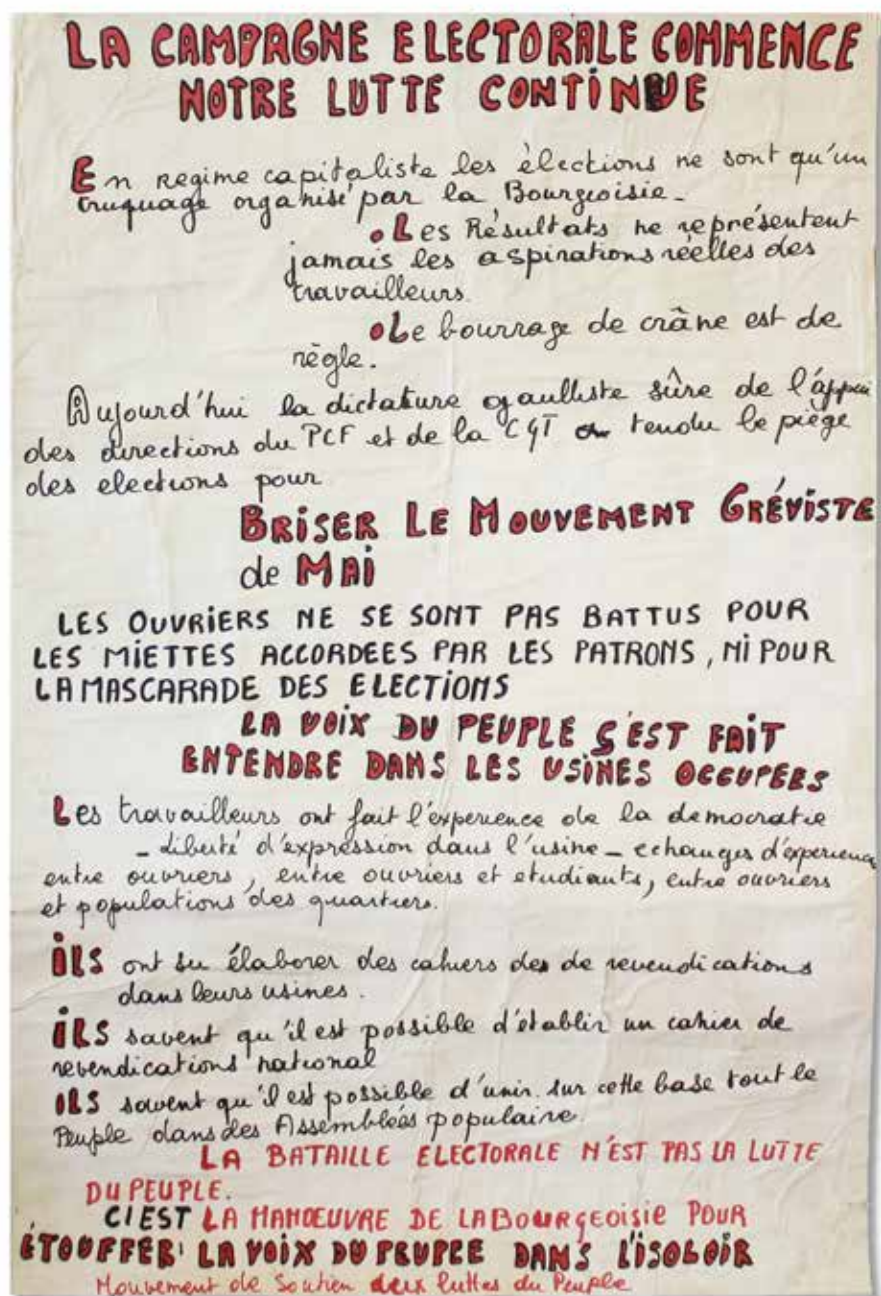 LA CAMPAGNE ELECTORALE COMMENCE
NOTRE LUTTE CONTINUE
En regime capitaliste les élections ne sont qu'un
truquage organisé par la Bourgeoisie_
• Les Résultats ne représentent
jamais les aspirations réelles des
travailleurs.
• Le bourrage de crâne est de
règle.
Aujourd'hui la dictature gaulliste sûre de l'appui
des directions du PCF et de la CGT a tendu le piège
des elections pour
BRISER LE MOUVEMENT GRÉVISTE
de MAI
LES OUVRIERS NE SE SONT PAS BATTUS POUR
LES MIETTES ACCORDEES PAR LES PATRONS, NI POUR
LA MASCARADE DES ELECTIONS
LA VOIX DU PEUPLE S'EST FAIT
ENTENDRE DANS LES USINES OCCUPEES
Les travailleurs ont fait l'experience de la democratie
_ liberté d'expression dans l'usine _ echanges d'experience
entre ouvriers, entre ouvriers et etudiants, entre ouvriers
et populations des quartiers.
ILS ont su élaborer des cahiers des de revendications
dans leurs usines.
ILS savent qu'il est possible d'établir un cahier de
revendications national
ILS savent qu'il est possible d'unir sur cette base tout le
Peuple dans des Assemblées populaire.
LA BATAILLE ELECTORALE N'EST PAS LA LUTTE
DU PEUPLE.
C'EST LA MANOEUVRE DE LA BOURGEOISIE POUR
ÉTOUFFER LA VOIX DU PEUPLE DANS L'ISOLOIR
Mouvement de Soutien aux luttes du Peuple